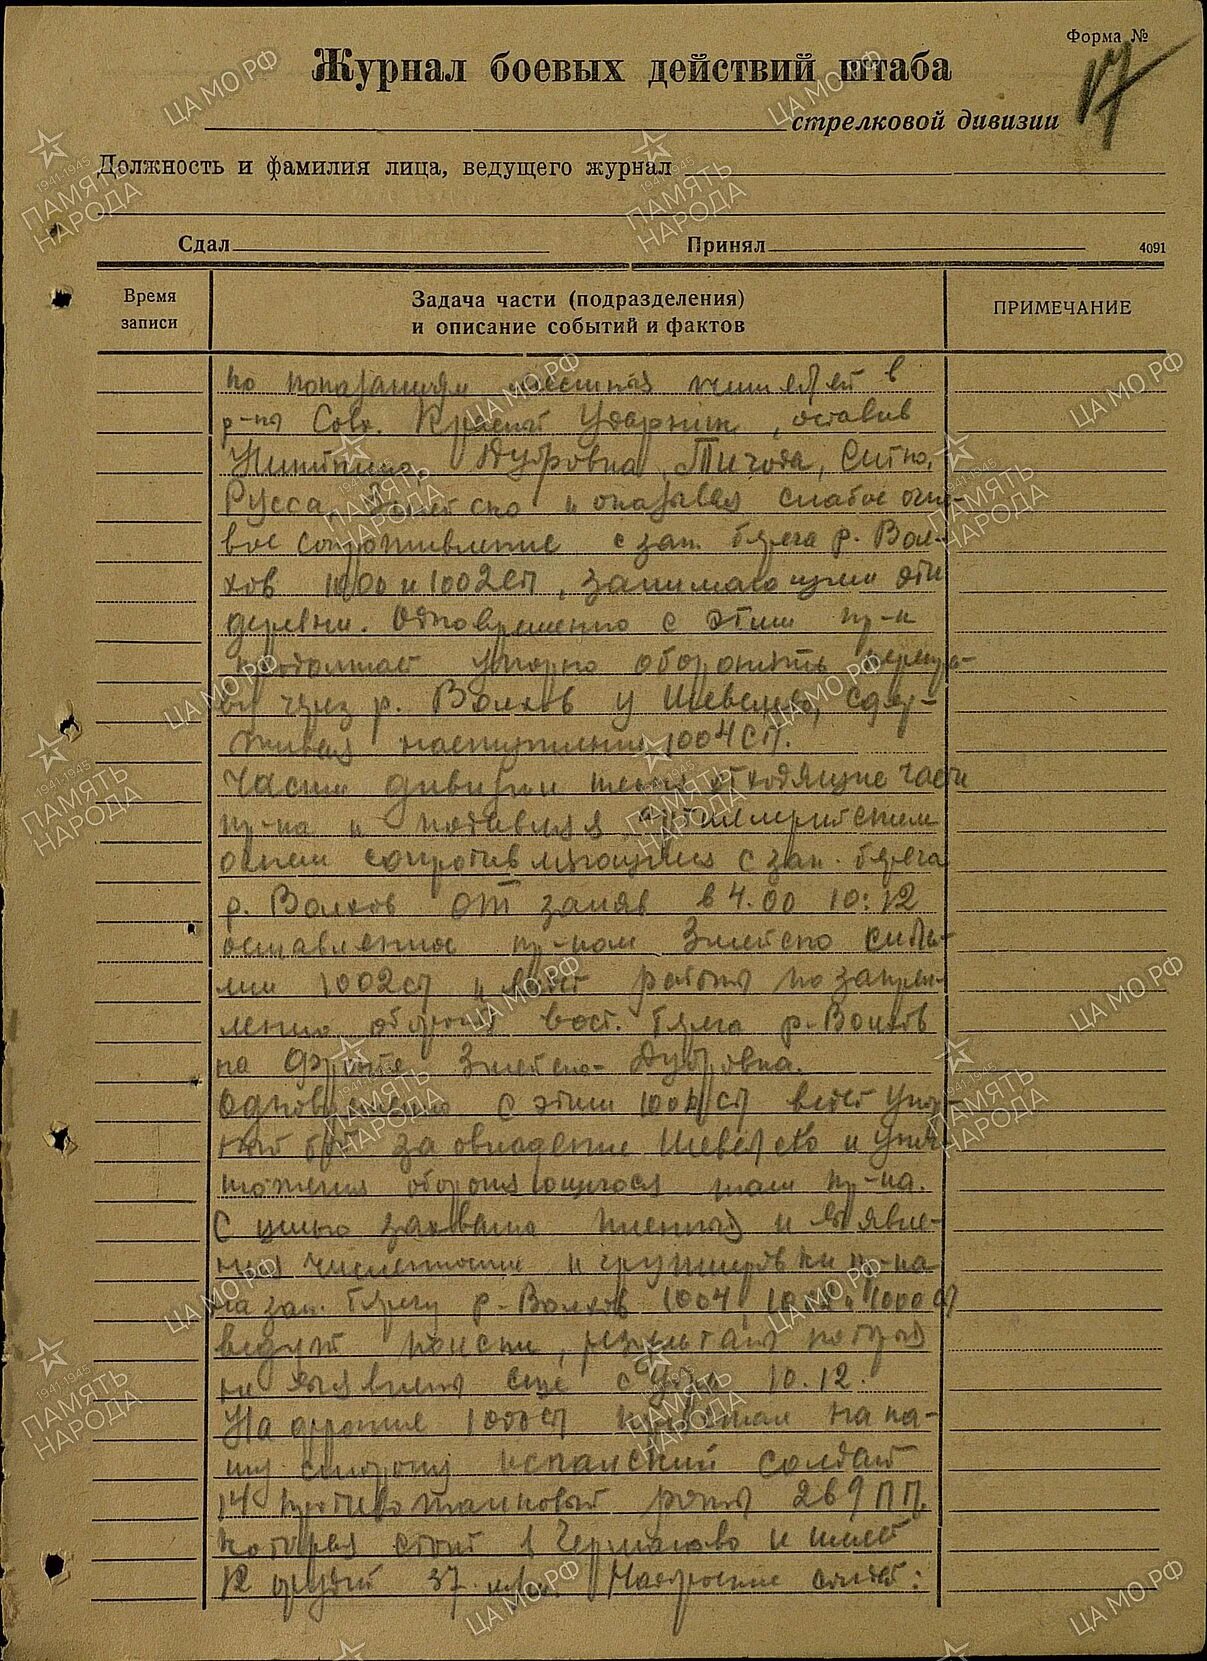 Форма №
17
Журнал боевых действий штаба
стрелковой дивизии
Должность и фамилия лица, ведущего журнал
Сдал Принял 4091
Время записи
Задача части (подразделения)
и описание событий и фактов
ПРИМЕЧАНИЕ
по показаниям местных жителей в
р-не Совх. Красный Ударник, оставив
Дубровка, Тигода, Ситно,
Русса, Змейско и оказывая слабое огне-
вое сопротивление с зап. берега р. Вол-
хов 1000 и 1002 сп, занимающим эти
деревни. Одновременно с этим пр-к
продолжает упорно оборонять
через р. Волхов у Шевелево, сдер-
живая наступление 1004 СП.
Части дивизии отходящие части
пр-ка и подавляя артиллерийским
огнем сопротивляющихся с зап. берега
р. Волхов заняв в 4.00 10.12
оставленное пр-ком Змейско сила-
ми 1002 сп и ведет работы по закреп-
лению вост. берега р. Волхов
на фронте Змейско-Дубровка.
Одновременно с этим 1004 сп ведет упор-
ный бой за овладение Шевелево и унич-
тожения обороняющегося там пр-ка.
С целью захвата пленных и выявле-
ния численности и группировки пр-ка
на зап. берегу р. Волхов 1004, 1002 и 1000 сп
ведут поиски, результаты которых
не выявлены еще с утра 10.12.
На фронте 1000 сп на на-
шу сторону испанский солдат
14 противотанковый роты 269 ПП.
которая стоит в и имеет
12 орудий 37 м.м. Настроение солдат:
ЦА МО РФ
1941-1945
ПАМЯТЬ
НАРОДА